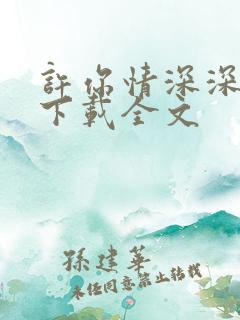 許你情深深
下載全文
孫建華
未經同意禁止轉載